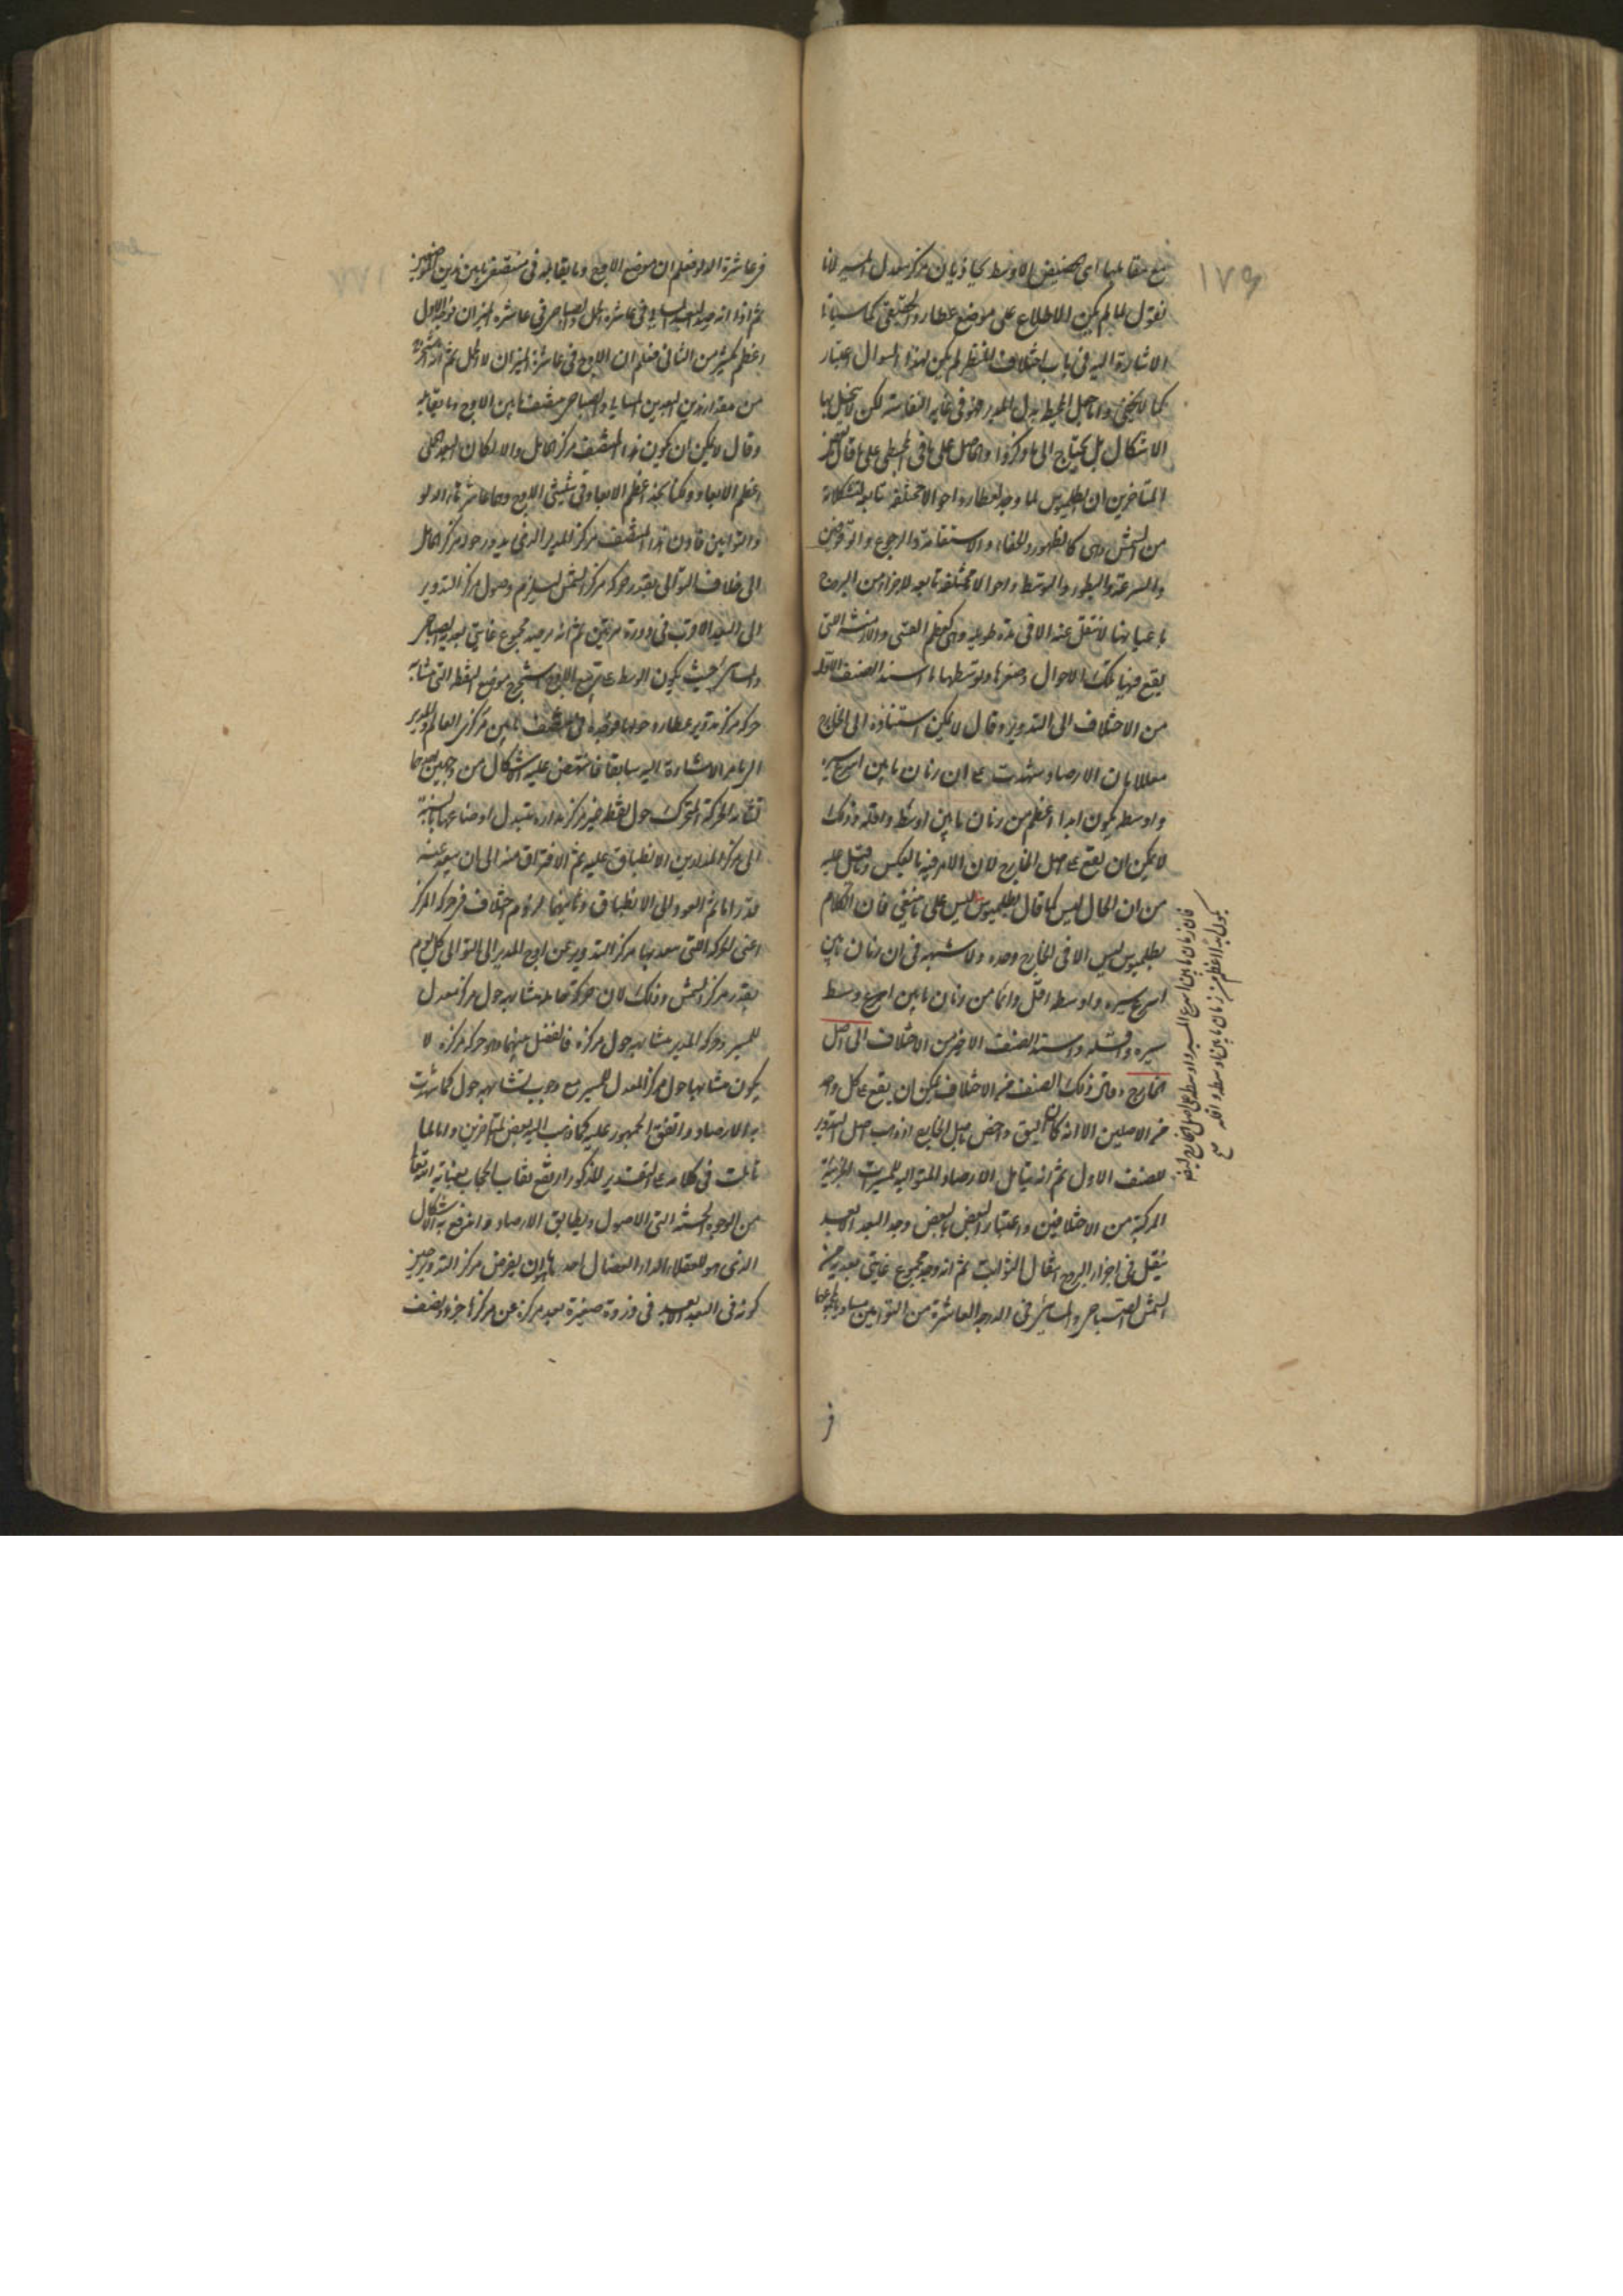 مع مقابلها اى الحضيض الاوسط يحاذيان مركز معدل المسير لانا
نقول لما لم يكن الاطلاع على موضع عطارد الحقيقى كما سياتى
الاشارة اليه فى باب اختلاف المنظر لم يكن لهذا السوال اعتبار
كما لا يخفى واما حمل المحيط بدل المدير فهو فى غاية النفاسة لكن لا ينحل بها
الاشكال بل يحتاج الى ما ذكروا والحاصل على ما فى المجسطى على ما قال بعض
المتاخرين ان بطلميوس لما وجد لعطارد احوالا مختلفة تابعة لتشكلاته
من الشمس وهى كالظهور والخفاء والاستقامة والرجوع والوقوفين
والسرعة والبطوء والتوسط واحوالا مختلفة تابعة لاجزاء من البروج
باعيانها لا تنتقل عنه الا فى مدة طويلة وهى كعظم القسى والازمنة التى
يقع فيها تلك الاحوال وصغرها وتوسطها اسند الصنف الاول
من الاختلاف الى التدوير وقال لا يمكن استناده الى الخارج
معللا بان الارصاد شهدت على ان زمان ما بين اسرع سيره
واوسطه يكون ابدا اعظم من زمان ما بين اوسطه واقله وذلك
لا يمكن ان يقع على اصل الخارج لان الامر فيه بالعكس وما قيل عليه
من ان الحال ليس كما قال بطلميوس ليس على ما ينبغى فان الكلام
بطلميوس ليس الا فى الخارج وحده ولا شبهة فى ان زمان ما بين
اسرع سيره واوسطه اقل دائما من زمان ما بين اسرع وسط
سيره واقله واسند الصنف الاخير من الاختلاف الى اصل
الخارج وقال ذلك الصنف من الاختلاف يمكن ان يقع على كل واحد
من الاصلين الا انه كان اليق واخص باصل الخارج اذ ذهب اصل التدوير
للصنف الاول ثم انه بتامل الارصاد المتوالية للمسيرات الجزئية
المركبة من الاختلافين واعتبار البعض بالبعض وجد البعد الابعد
ينتقل فى اجزاء البروج انتقال الثوابت ثم انه وجد مجموع غايتى بعديه من
الشمس الصباحى والمسائى فى الدرجة العاشرة من التوامين مساويا لمجموعهما
فان زمان ما بين اسرع المسير واوسطه على اصل الخارج
يكون ابدا اعظم من زمان ما بين اوسطه واقله
١٧٩
فى عاشرة الدلو فعلم ان موضع الاوج وما يقابله فى منتصف ما بين هذين الجزئين
ثم اذا انه وجد البعد المسائى فى عاشرة الحمل والصباحى فى عاشرة الميزان فوجد الاول
اعظم بكثير من الثانى فعلم ان الاوج فى عاشرة الميزان لا الحمل ثم انه استخرج
من مقدار هذين البعدين المسائى والصباحى منتصف ما بين الاوج وما يقابله
وقال لا يمكن ان يكون هذا المنتصف مركز الحامل والا لكان البعد الحملى
اعظم الابعاد ولكنا نجد اعظم الابعاد فى تثليثى الاوج وهما عاشرتا الدلو
والتوامين فاذن هذا المنتصف مركز المدير الذى يدور حوله مركز الحامل
الى خلاف التوالى بقدر حركة مركز الشمس ليلزم وصول مركز التدوير
الى البعد الاقرب فى دورة مرتين ثم انه رصد مجموع غايتى بعديه الصباحى
والمسائى بحيث يكون الوسط على تربيع الاوج واستخرج موضع النقطة التى تشابه
حركة مركز تدوير عطارد حولها فوجده فى المنتصف ما بين مركزى العالم والمدير
الى ما مر الاشارة اليه سابقا فانتهض عليه الاشكال من وجهين احدهما
تشابه الحركة المتحركة حول نقطة غير مركز مداره متبدل اوضاعها بالنسبة
الى مركز المدارين الانطباق عليه ثم الافتراق منه الى ان يبعد عنه
قدرا ما ثم العود الى الانطباق وثانيهما لزوم اختلاف فى حركة المركز
اعنى الحركة التى يبعد بها مركز التدوير عن اوج المدير الى التوالى كل يوم
بقدر مركز الشمس وذلك لان حركة الحامل متشابهة حول مركز معدل
المسير وحركة المدير متشابهة حول مركزه فالفضل بينهما وهو حركة مركزه لا
يكون متشابها حول مركز المعدل المسير مع وجوب تشابهه حوله كما شهدت
به الارصاد واتفق الجمهور عليه كما ذهب اليه بعض المتاخرين واما لما
تاملت فى كلامه على التقدير المذكور ارتفع نقاب الحجاب بعناية
من الوجوه الخمسة التى الاصول ويطابق الارصاد واندفع به الاشكال
الذى هو للعقلاء الداء العضال احدها ان يفرض مركز التدوير حين
كونه فى البعد الابعد فى ذروة صغيرة بعد مركزه عن مركزها جزء ونصف
١٧٧